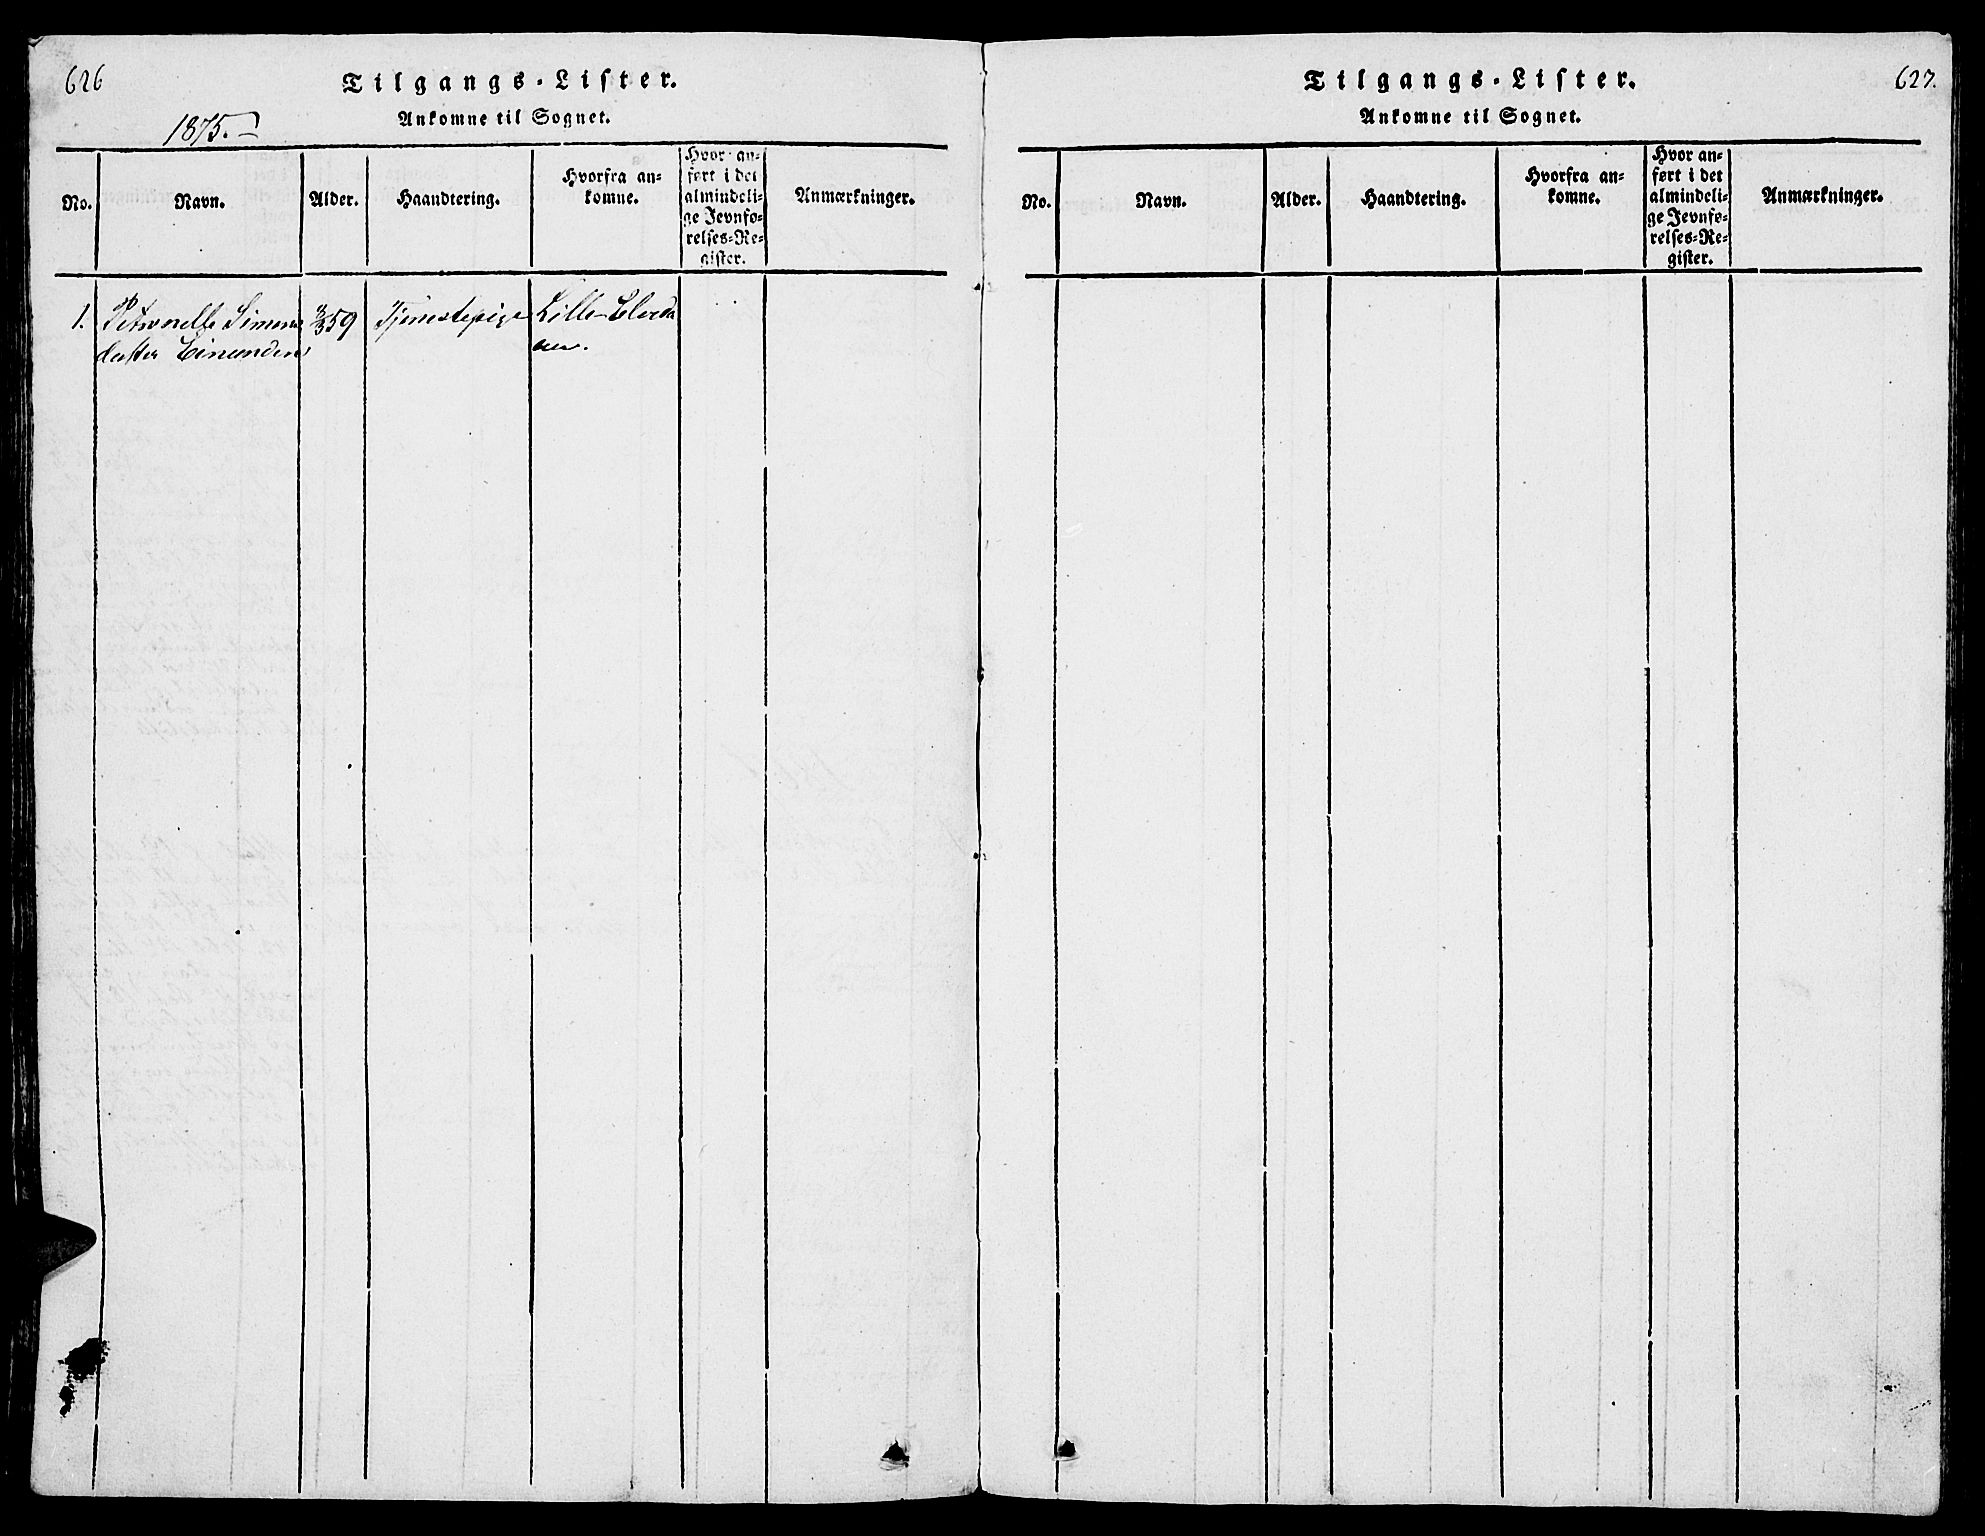 626
Tilgangs-Lister.
Ankomne til Sognet.
1875.
No.
Navn.
Alder.
Haandtering.
Hvorfra an=
komne.
Hvor an=
ført i det
almindeli=
ge Jevnfø=
relses=Re=
gister.
Anmærkninger.
1. Petronelle Simens 59 Tjenestepige Lille-Elveda
datter Einunden len.
Tilgangs-Lister.
627.
Ankomne til Sognet.
No.
Navn.
Alder.
Haandtering.
Hvorfra an=
komne.
Hvor an=
ført i det
almindeli=
ge Jevnfø=
relses=Re=
gister.
Anmærkninger.